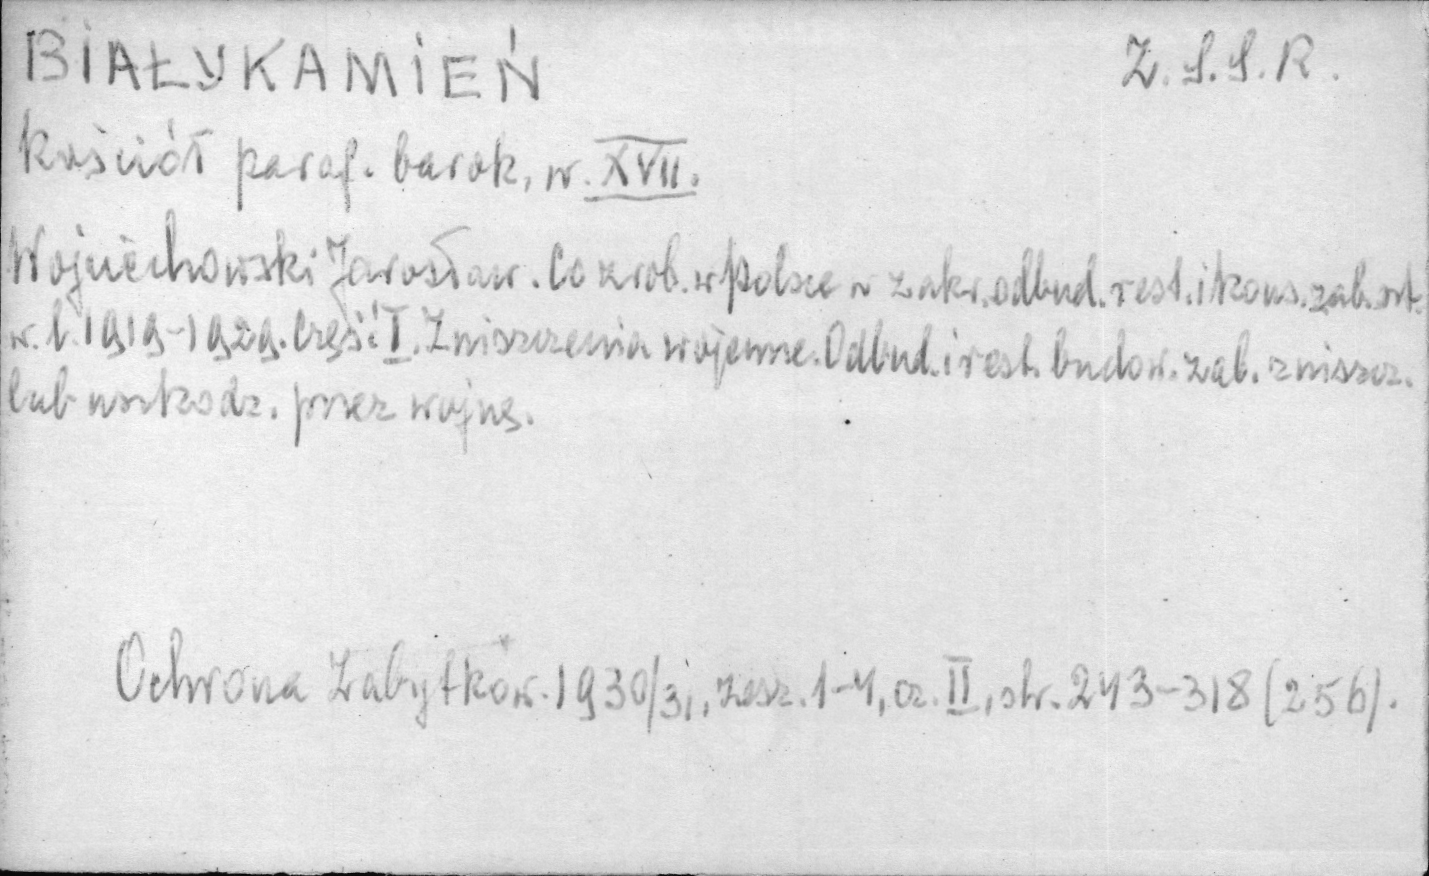 BIAŁYKAMIEŃ
Z.S.S.R.
Kościół paraf. barok, w. XVII.
Wojciechowski Jarosław. Co zrob. w Polsce w zakr. odbud. rest. i kons. zab. szt.
w l. 1919-1929. Część I. Zniszczenia wojenne. Odbud. i rest. budow. zab. zniszcz.
lub uszkodz. przez wojnę.
Ochrona Zabytków. 1930/31, zesz. 1-4, cz. II, str. 243-318 (256).